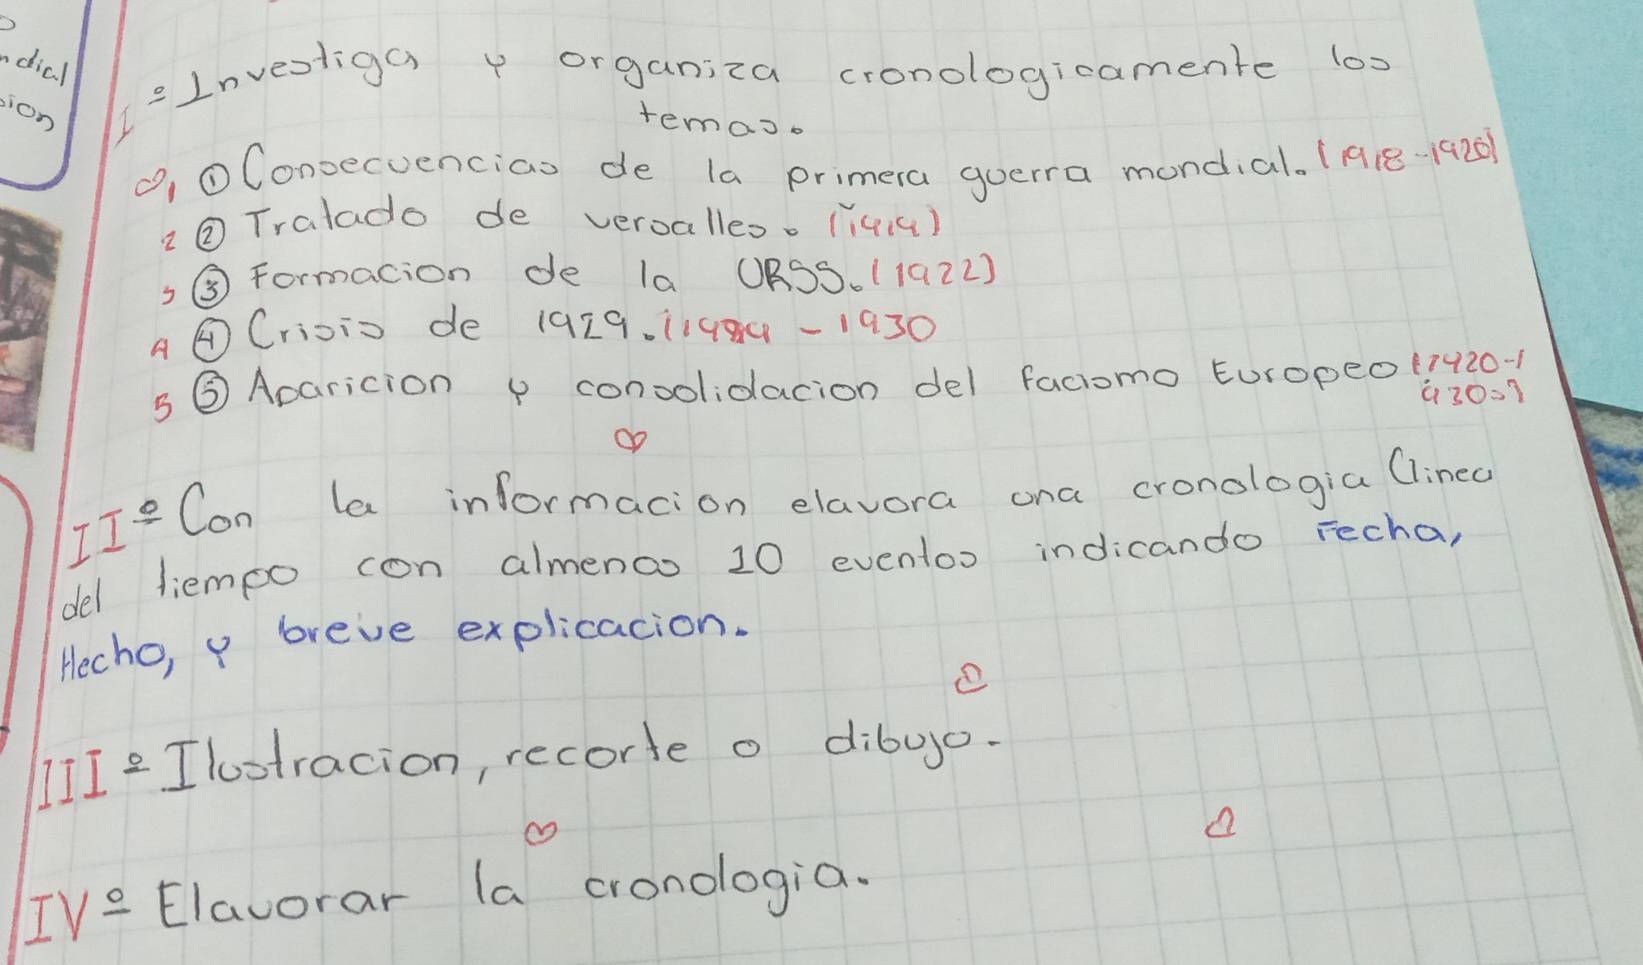 ndial
sion
Iº Investiga y organiza cronologicamente los
temas.
1 ① Consecuencias de la primera guerra mundial. (1918-1920)
2 ② Tratado de versalles. (1919)
3 ③ Formacion de la URSS. (1922)
4 ④ Crisis de 1929. (1929 - 1930
5 ⑤ Aparicion y consolidacion del facismo Europeo (1920-1
930s)
IIº Con la informacion elavora una cronologia (linea
del tiempo con almenos 10 eventos indicando Fecha,
Hecho, y breve explicacion.
IIIº Ilustracion, recorte o dibujo.
IVº Elavorar la cronologia.